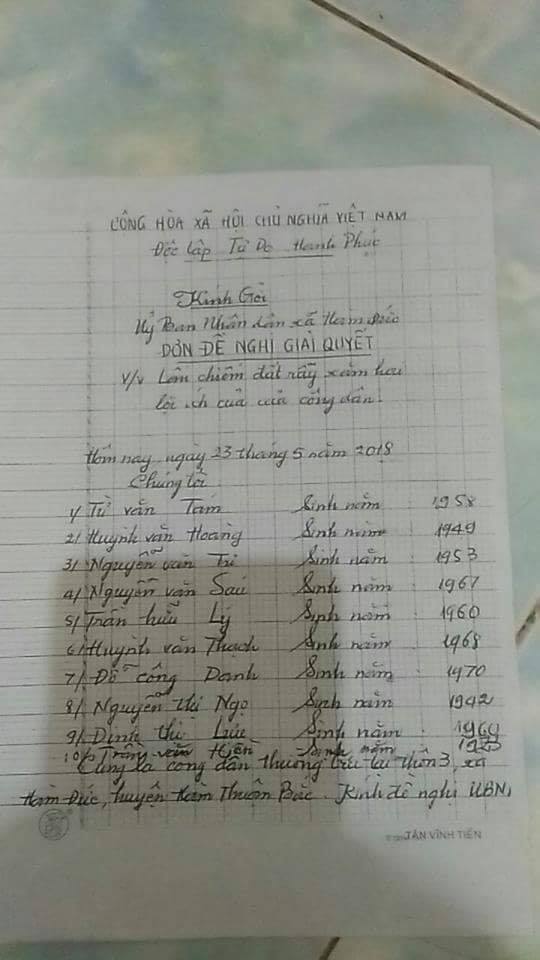 CÔNG HÒA XÃ HỘI CHỦ NGHĨA VIỆT NAM
Độc lập Tự Do Hạnh Phúc
Kính Gởi
Uỷ Ban Nhân dân xã Hàm Đức
ĐƠN ĐỀ NGHỊ GIẢI QUYẾT
V/v Lấn chiếm đất rẫy xâm hại
lợi ích của của công dân.
Hôm nay ngày 23 tháng 5 năm 2018
Chúng tôi
1/ Từ văn Tám Sinh năm : 1958
2/ Huỳnh văn Hoàng Sinh năm : 1949
3/ Nguyễn văn Trì Sinh năm : 1953
4/ Nguyễn văn Sáu Sinh năm : 1967
5/ Trần hữu Lý Sinh năm : 1960
6/ Huỳnh văn Thạch Sinh năm : 1968
7/ Đỗ công Danh Sinh năm : 1970
8/ Nguyễn thị Ngọ Sinh năm : 1942
9/ Đinh thị Lưu Sinh năm : 1969
10/ Trần văn Hiền Sinh năm
Cùng là công dân thường trú tại thôn 3, xã
Hàm Đức, huyện Hàm Thuận Bắc. Kính đề nghị UBN
TÂN VĨNH TIẾN